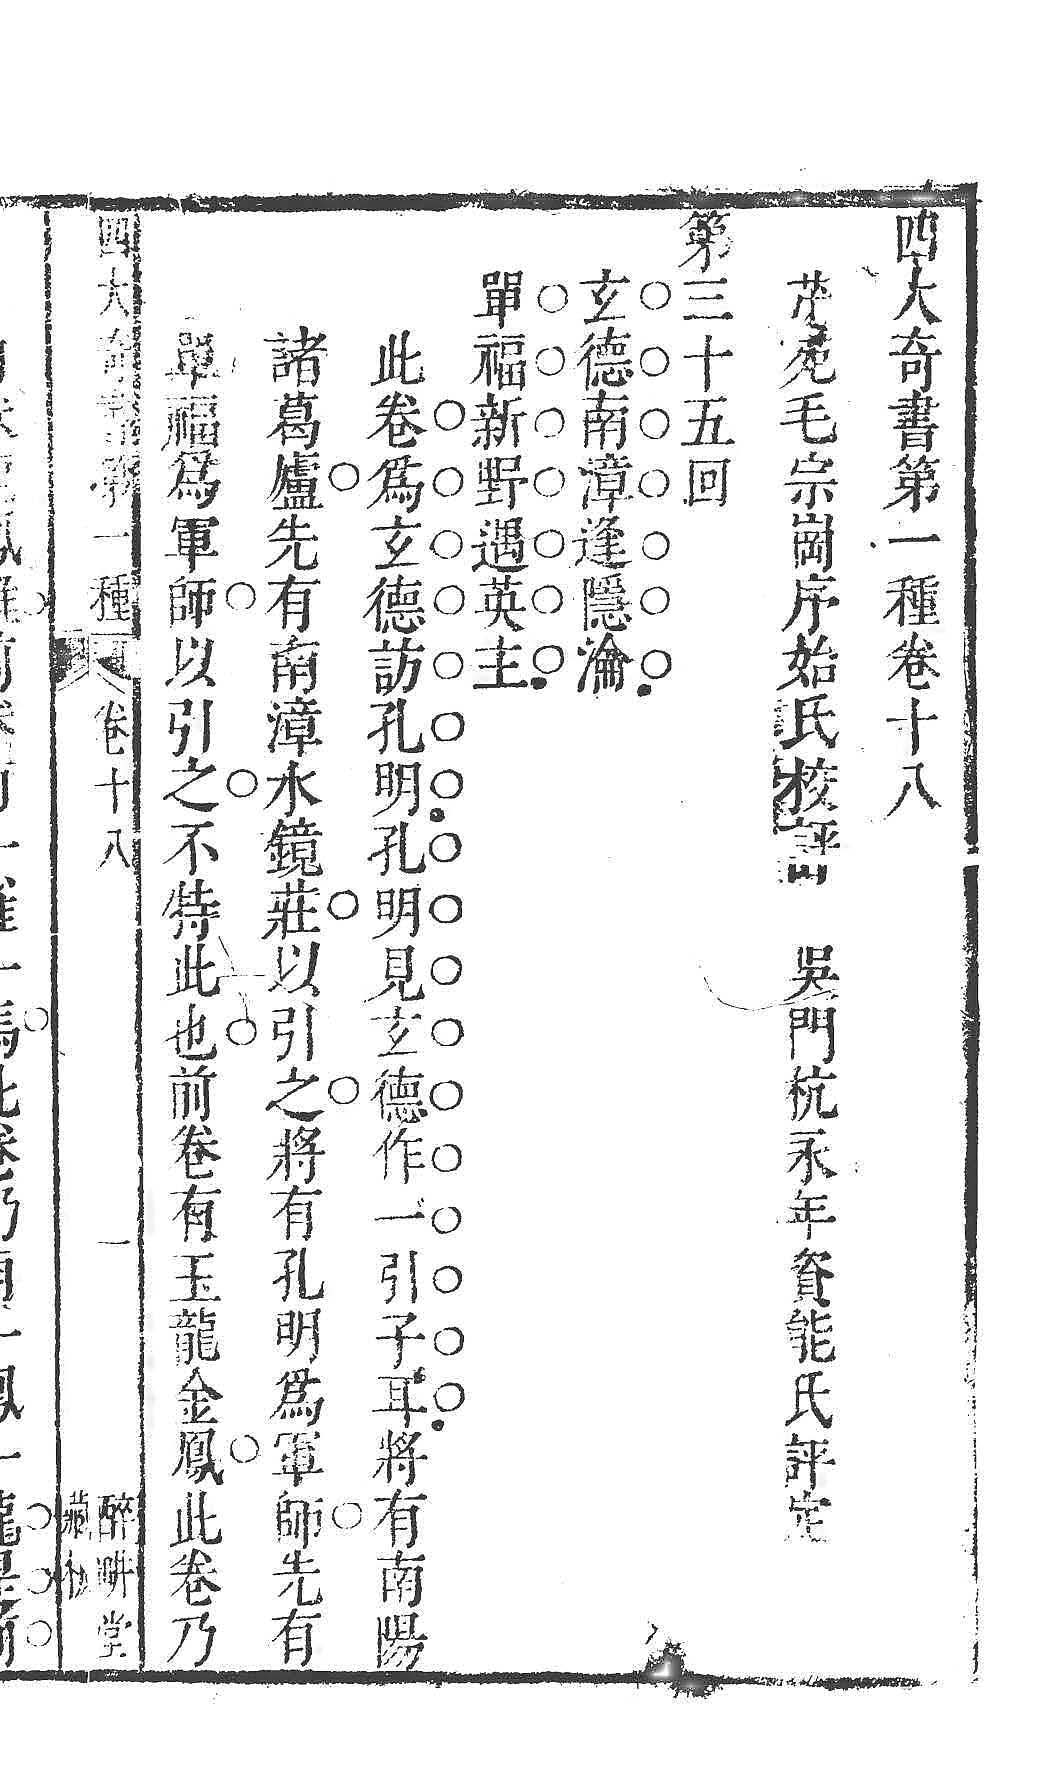 四大奇書第一種卷十八
茂苑毛宗崗序始氏校評　吳門杭永年資能氏評定
第三十五回
玄德南漳逢隱淪
單福新野遇英主
此卷爲玄德訪孔明孔明見玄德作一引子耳將有南陽
諸葛廬先有南漳水鏡莊以引之將有孔明爲軍師先有
單福爲軍師以引之不特此也前卷有玉龍金鳳此卷乃
四大奇書第一種　卷十八　一　醉畊堂
藏板